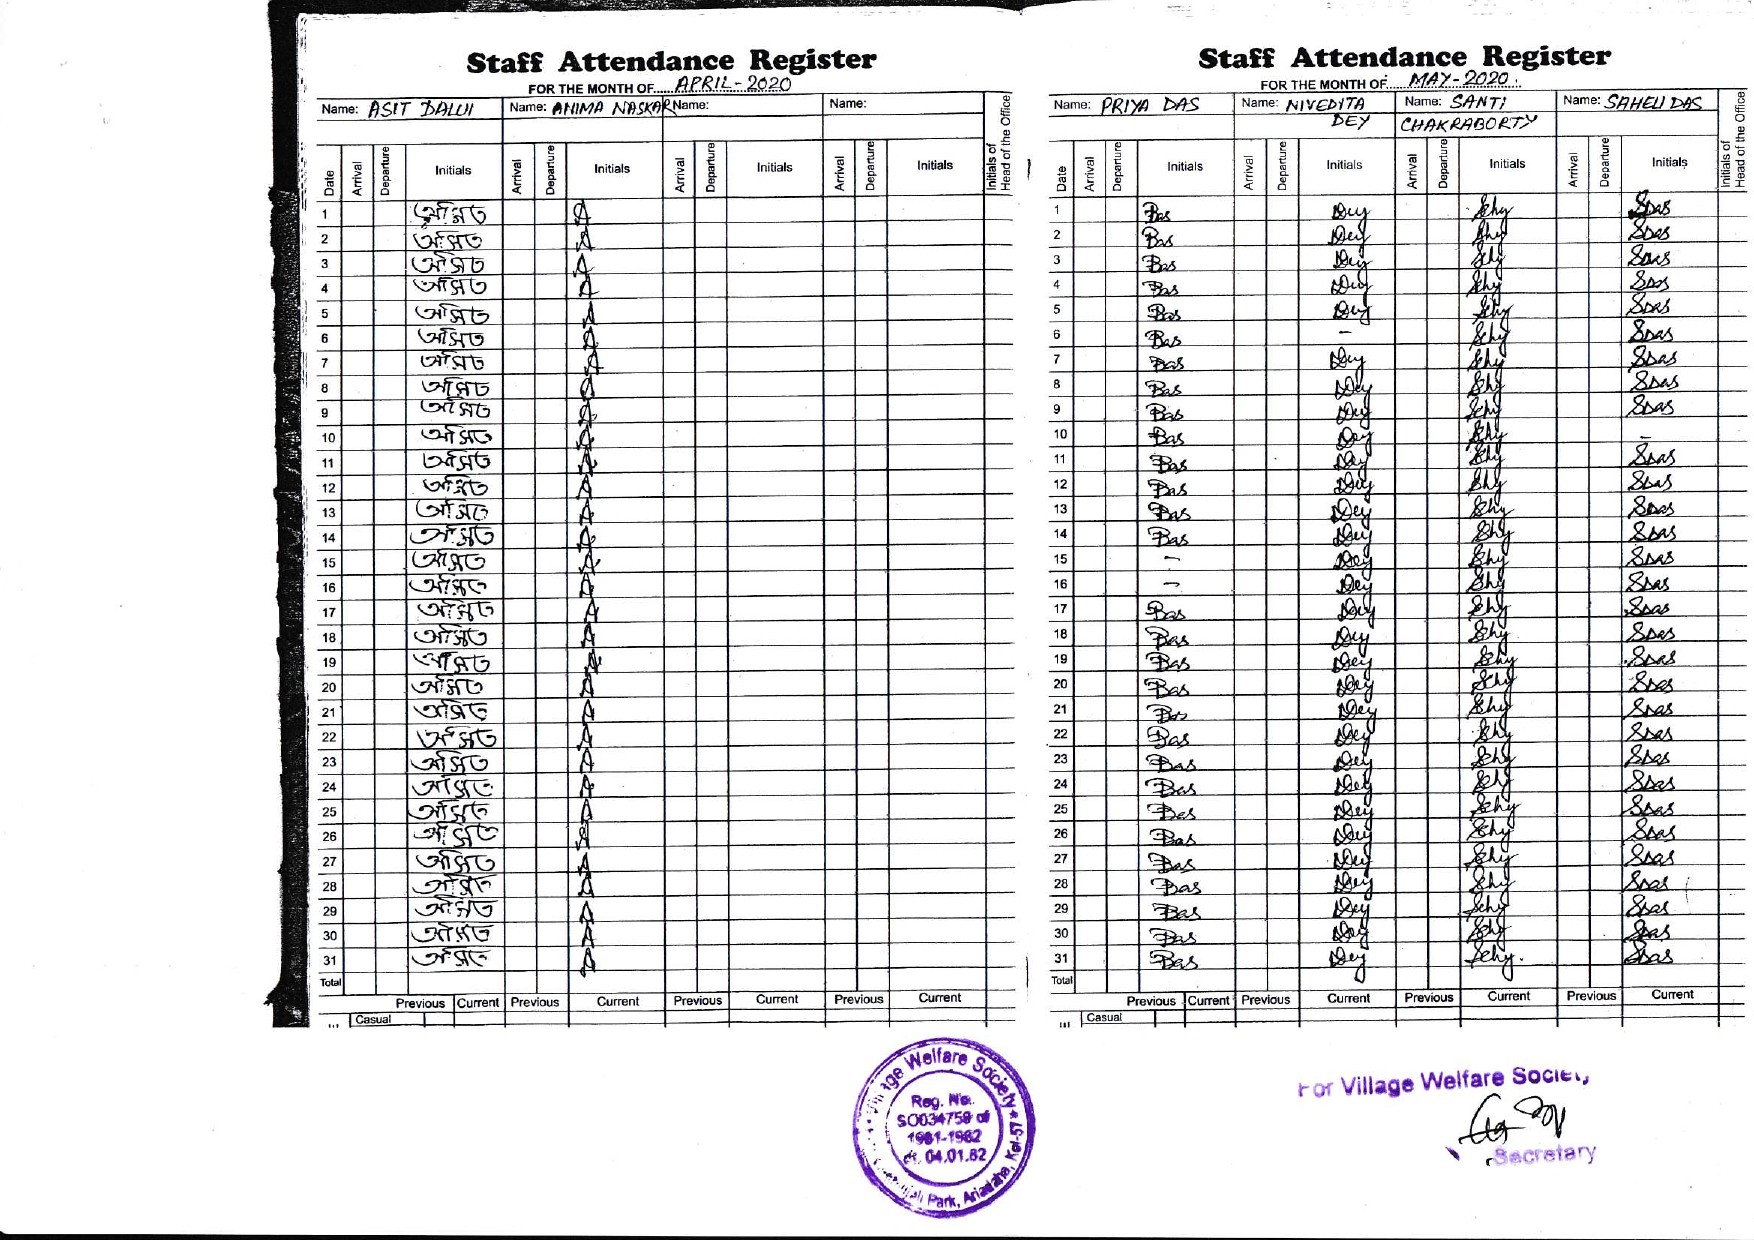 Staff Attendance Register
FOR THE MONTH OF APRIL-2020
Name: ASIT DALUI Name: ANIMA NASKAR Name: Name:
Initials of Head of the Office
Date Arrival Departure Initials Arrival Departure Initials Arrival Departure Initials Arrival Departure Initials
1 অসিত A
2 অসিত A
3 অসিত A
4 অসিত A
5 অসিত A
6 অসিত A
7 অসিত A
8 অসিত A
9 অসিত A
10 অসিত A
11 অসিত A
12 অসিত A
13 অসিত A
14 অসিত A
15 অসিত A
16 অসিত A
17 অসিত A
18 অসিত A
19 অসিত A
20 অসিত A
21 অসিত A
22 অসিত A
23 অসিত A
24 অসিত A
25 অসিত A
26 অসিত A
27 অসিত A
28 অসিত A
29 অসিত A
30 অসিত A
31 অসিত A
Total
Previous Current Previous Current Previous Current Previous Current
Casual
Staff Attendance Register
FOR THE MONTH OF MAY-2020.
Name: PRIYA DAS Name: NIVEDITA Name: SANTI Name: SAHELI DAS
DEY CHAKRABORTY
Initials of Head of the Office
Date Arrival Departure Initials Arrival Departure Initials Arrival Departure Initials Arrival Departure Initials
1 Bas Dey Schy SDas
2 Bas Dey Schy SDas
3 Bas Dey Schy SDas
4 Bas Dey Schy SDas
5 Bas Dey Schy SDas
6 Bas - Schy SDas
7 Bas Dey Schy SDas
8 Bas Dey Schy SDas
9 Bas Dey Schy SDas
10 Bas Dey Schy -
11 Bas Dey Schy SDas
12 Bas Dey Schy SDas
13 Bas Dey Schy SDas
14 Bas Dey Schy SDas
15 - Dey Schy SDas
16 - Dey Schy SDas
17 Bas Dey Schy SDas
18 Bas Dey Schy SDas
19 Bas Dey Schy SDas
20 Bas Dey Schy SDas
21 Bas Dey Schy SDas
22 Bas Dey Schy SDas
23 Bas Dey Schy SDas
24 Bas Dey Schy SDas
25 Bas Dey Schy SDas
26 Bas Dey Schy SDas
27 Bas Dey Schy SDas
28 Bas Dey Schy SDas
29 Bas Dey Schy SDas
30 Bas Dey Schy SDas
31 Bas Dey Schy. SDas
Total
Previous Current Previous Current Previous Current Previous Current
Casual
Village Welfare Society
Reg. No.
SO034758 of
1981-1982
dt. 04.01.82
Park, Ariadaha, Kol-57
For Village Welfare Society
Secretary